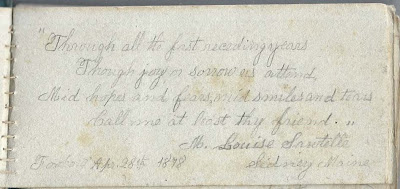 "Through all the fast receding years
Though joy or sorrow us attend,
Mid hopes and fears, mid smiles and tears
Call me at least thy friend."
M. Louise Sawtelle
Apr 28th 1878 Sidney Maine